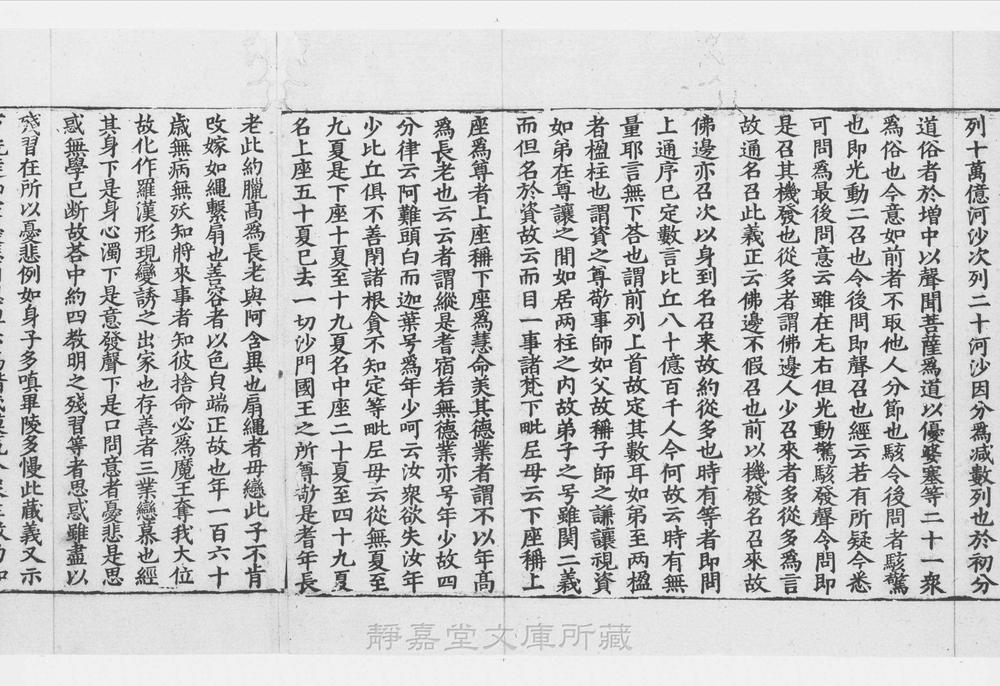 列十萬億河沙次列二十河沙因分爲減數列也於初分
道俗者於增中以聲聞菩薩爲道以優婆塞等二十一衆
爲俗也今意如前者不取他人分節也駭令後問者駭驚
也即光動二召也令後問即聲召也經云若有所疑今悉
可問爲最後問意云雖在左右但光動驚駭發聲令問即
是召其機發也從多者謂佛邊人少召來者多從多爲言
故通名召此義正云佛邊不假召也前以機發名召來故
佛邊亦召次以身到名召來故約從多也時有等者即問
上通序已定數言比丘八十億百千人今何故云時有無
量耶言無下荅也謂前列上首故定其數耳如弟至两楹
者楹柱也謂資之尊敬事師如父故稱子師之謙讓視資
如弟在尊讓之間如居两柱之内故弟子之号雖関二義
而但名於資故云而目一事諸梵下毗尼母云下座稱上
座爲尊者上座稱下座爲慧命美其德業者謂不以年高
爲長老也云云者謂縱是耆宿若無德業亦号年少故四
分律云阿難頭白而迦葉号爲年少呵云汝衆欲失汝年
少比丘俱不善閇諸根貪不知定等毗尼母云從無夏至
九夏是下座十夏至十九夏名中座二十夏至四十九夏
名上座五十夏已去一切沙門國王之所尊敬是耆年長
老此約臘高爲長老與阿含異也扇繩者毋戀此子不肯
攺嫁如繩繫扇也善容者以色皃端正故也年一百六十
歳無病無夭知將來事者知彼捨命必爲魔王奪我大位
故化作羅漢形現變誘之出家也存善者三業戀慕也經
其身下是身心濁下是意發聲下是口問意者憂悲是思
惑無學已斷故荅中約四教明之殘習等者思惑雖盡以
殘習在所以憂悲例如身子多嗔畢陵多慢此蔵義又示
靜嘉堂文庫所藏